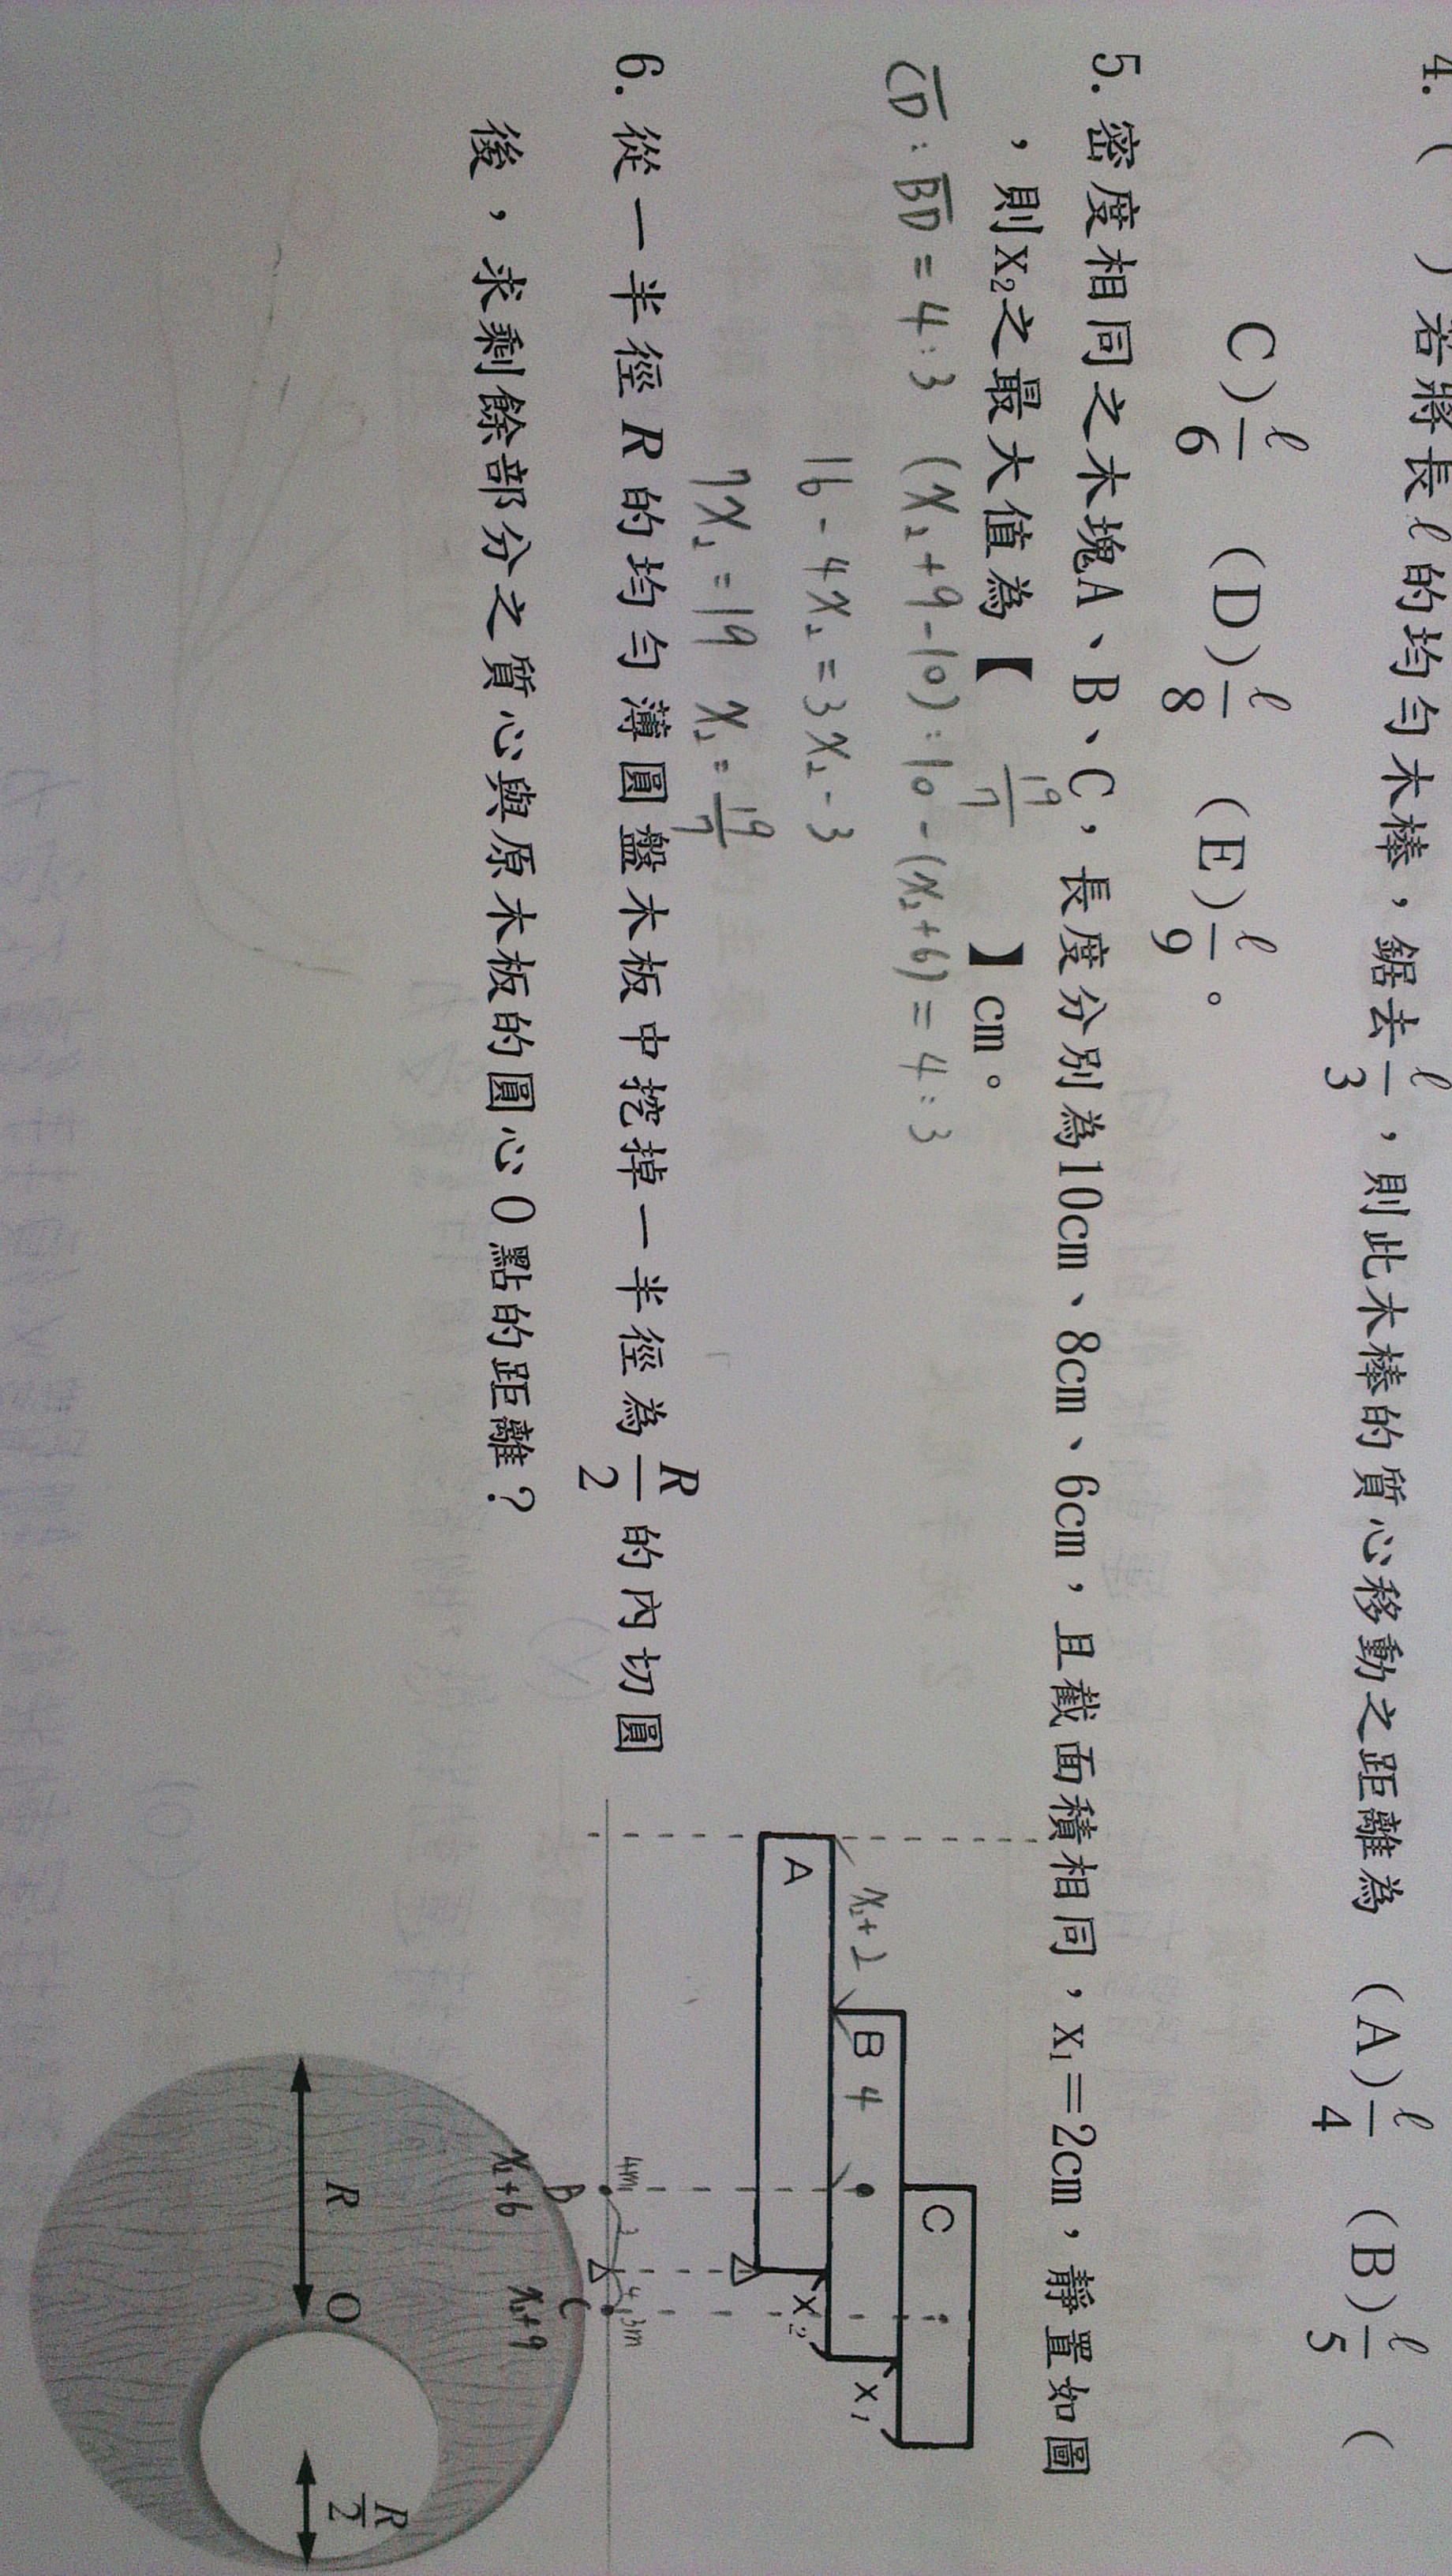 4. (　) 若將長ℓ的均勻木棒，鋸去ℓ/3，則此木棒的質心移動之距離為 (A)ℓ/4 (B)ℓ/5 (
C)ℓ/6 (D)ℓ/8 (E)ℓ/9 。
5. 密度相同之木塊A、B、C，長度分別為10cm、8cm、6cm，且截面積相同，x₁=2cm，靜置如圖
，則x₂之最大值為【 19/7 】cm。
CD : BD = 4 : 3 (x₂+9-10) : 10-(x₂+6) = 4 : 3
16-4x₂=3x₂-3
7x₂=19 x₂=19/7
C
x₁
x₂+2
B 4
x₂
A
4m 3 4 3m
B C
x₂+6 x₂+9
6. 從一半徑R的均勻薄圓盤木板中挖掉一半徑為R/2的內切圓
後，求剩餘部分之質心與原木板的圓心O點的距離？
R O R/2